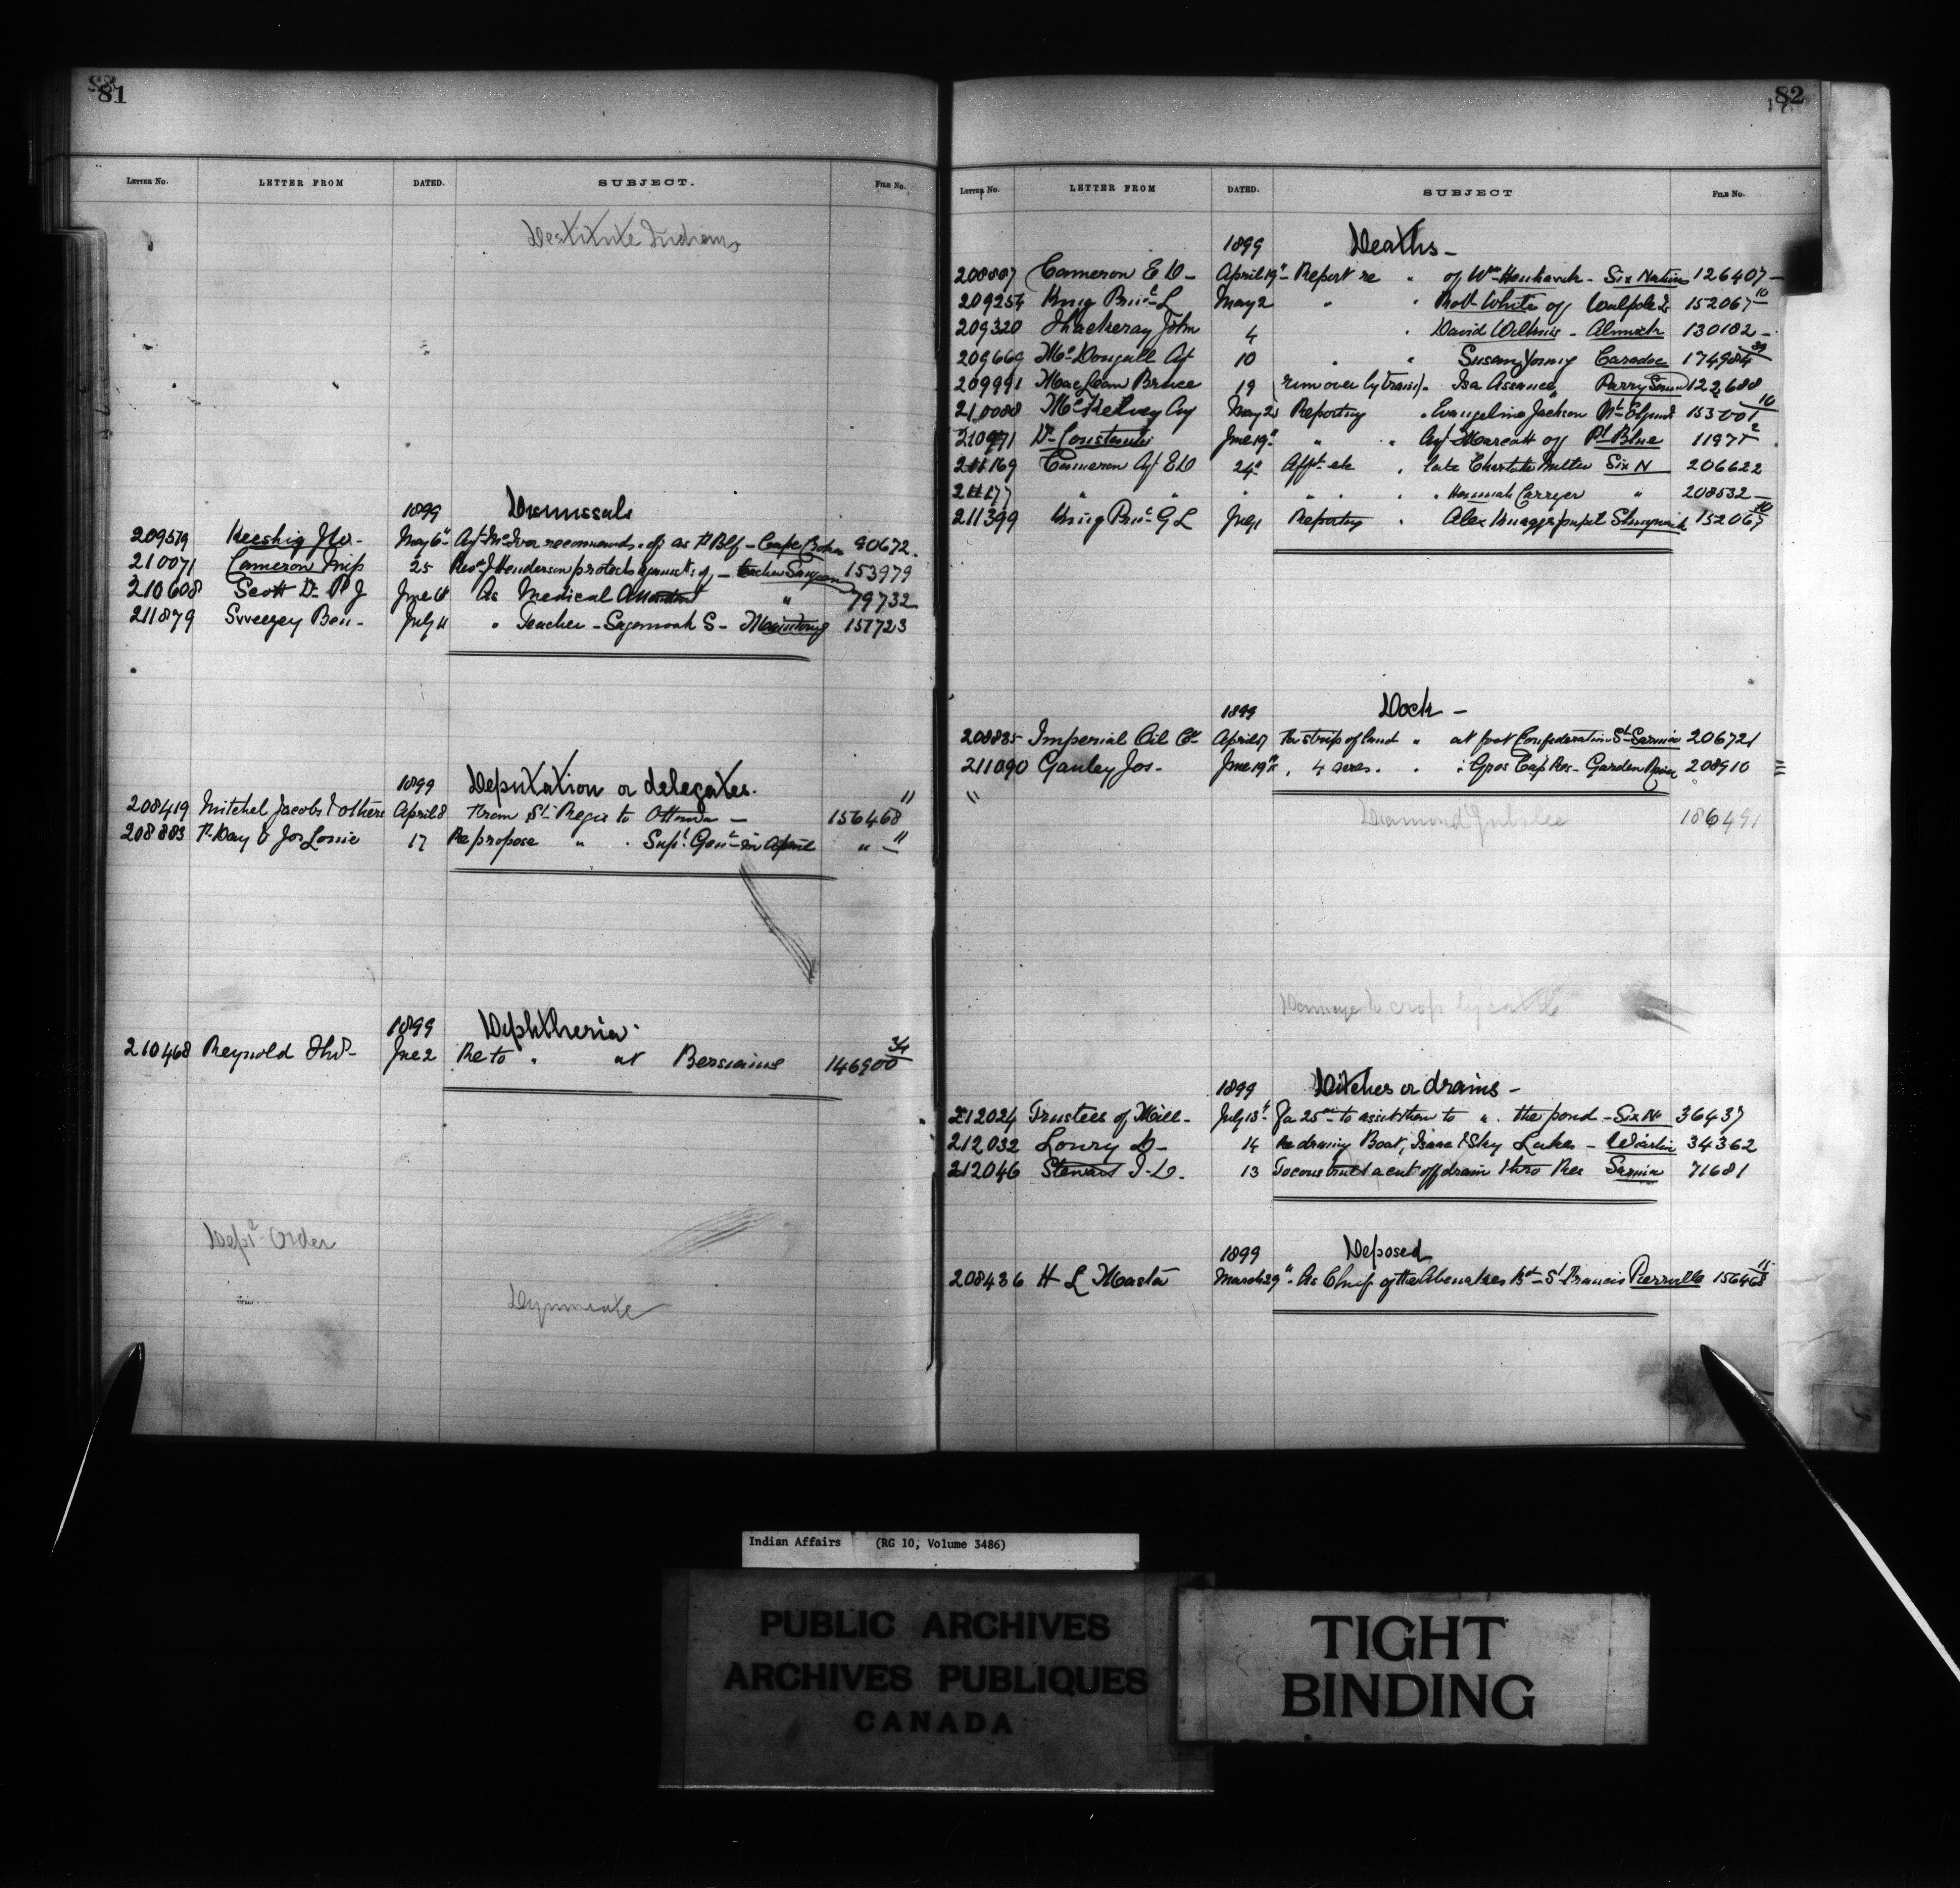 81
LETTER NO. LETTER FROM DATED. SUBJECT. FILE No.
Destitute Indians
1899 Dismissals
209579 Keeshig Jno - May 6" Agt McIver recommends of as F. Blf - Cape Croker 90672.
210071 Cameron Miss 25 Revd J Henderson protests against of - teacher Saugeen 153979
210608 Scott Dr P J June 6 As Medical Attendant " 79732
211879 Sweezey Ben - July 11 " Teacher - Sagamook S - Manitowg 157723
1899 Deputation or delegates.
208419 Mitchel Jacobs & others April 8 From St Regis to Ottawa - 156468 11
208883 P. Day & Jos Lorne 17 Re propose " " Supt Genl in April " - 11
1899 Diphtheria.
210468 Reynold Thos - June 2 Re to " at Bersiamis 146900 34
Dept Order
Dynamite
82
LETTER No. LETTER FROM DATED. SUBJECT FILE No.
1899 Deaths -
208887 Cameron E D - April 19" Report re " of Wm Henhawk - Six Nations 126407 -
209254 King Princ L May 2 " " Robt White of Walpole Is 152067 10
209320 Thackeray John 4 " David Wilkins - Alnwick 130182 -
209669 McDougall Agt 10 " " Susan Young Caradoc 174984 39
209991 MacLean Bruce 19 (run over by train) " Isa Assance Parry Sound 122688
210088 McKelvey Agt May 25 Reporting " Evangeline Jackson Mt Elgin 153001 10
210971 Dr Constantin June 19" " " Agt Marcott of Pt Blue 11977 2
211169 Cameron Agt E D 24" Afft etc " late Charlotte Miller Six N 206622
21117 " " " " " " " Hannah Carryer " 208532 -
211399 King Princ G L July 1 Reporting " Alex Knaggs pupil Shingwauk 152067 10
1899 Dock -
208885 Imperial Oil Co April 17 For strip of land " at foot Confederation St Sarnia 206721
211090 Ganley Jos - June 19" " 4 acres " " Gros Cap Res - Garden River 208910
Diamond Jubilee 186491
Damage to crop by cattle
1899 Ditches or drains -
212024 Trustees of Mill - July 13" For 25.00 to assist them to " the pond - Six N 36437
212032 Loury D - 14 Re draining Boat, Isaac & Sky Lakes - Wiarton 34362
212046 Stewart J. D. 13 To construct a cut off drain thro Res Sarnia 71681
1899 Deposed
208436 H L Masta March 29" As Chief of the Abenakes Bd - St Francis Pierreville 156468 11
Indian Affairs (RG 10, Volume 3486)
PUBLIC ARCHIVES
ARCHIVES PUBLIQUES
CANADA
TIGHT
BINDING